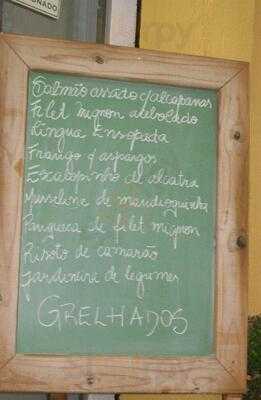 IONADO
Salmão assado c/alcaparras
Filet mignon acebolado
Lingua Ensopada
Frango c/aspargos
Escalopinho de alcatra
Musseline de mandioquinha
Panqueca de filet mignon
Risoto de camarão
Jardineira de legumes
GRELHADOS